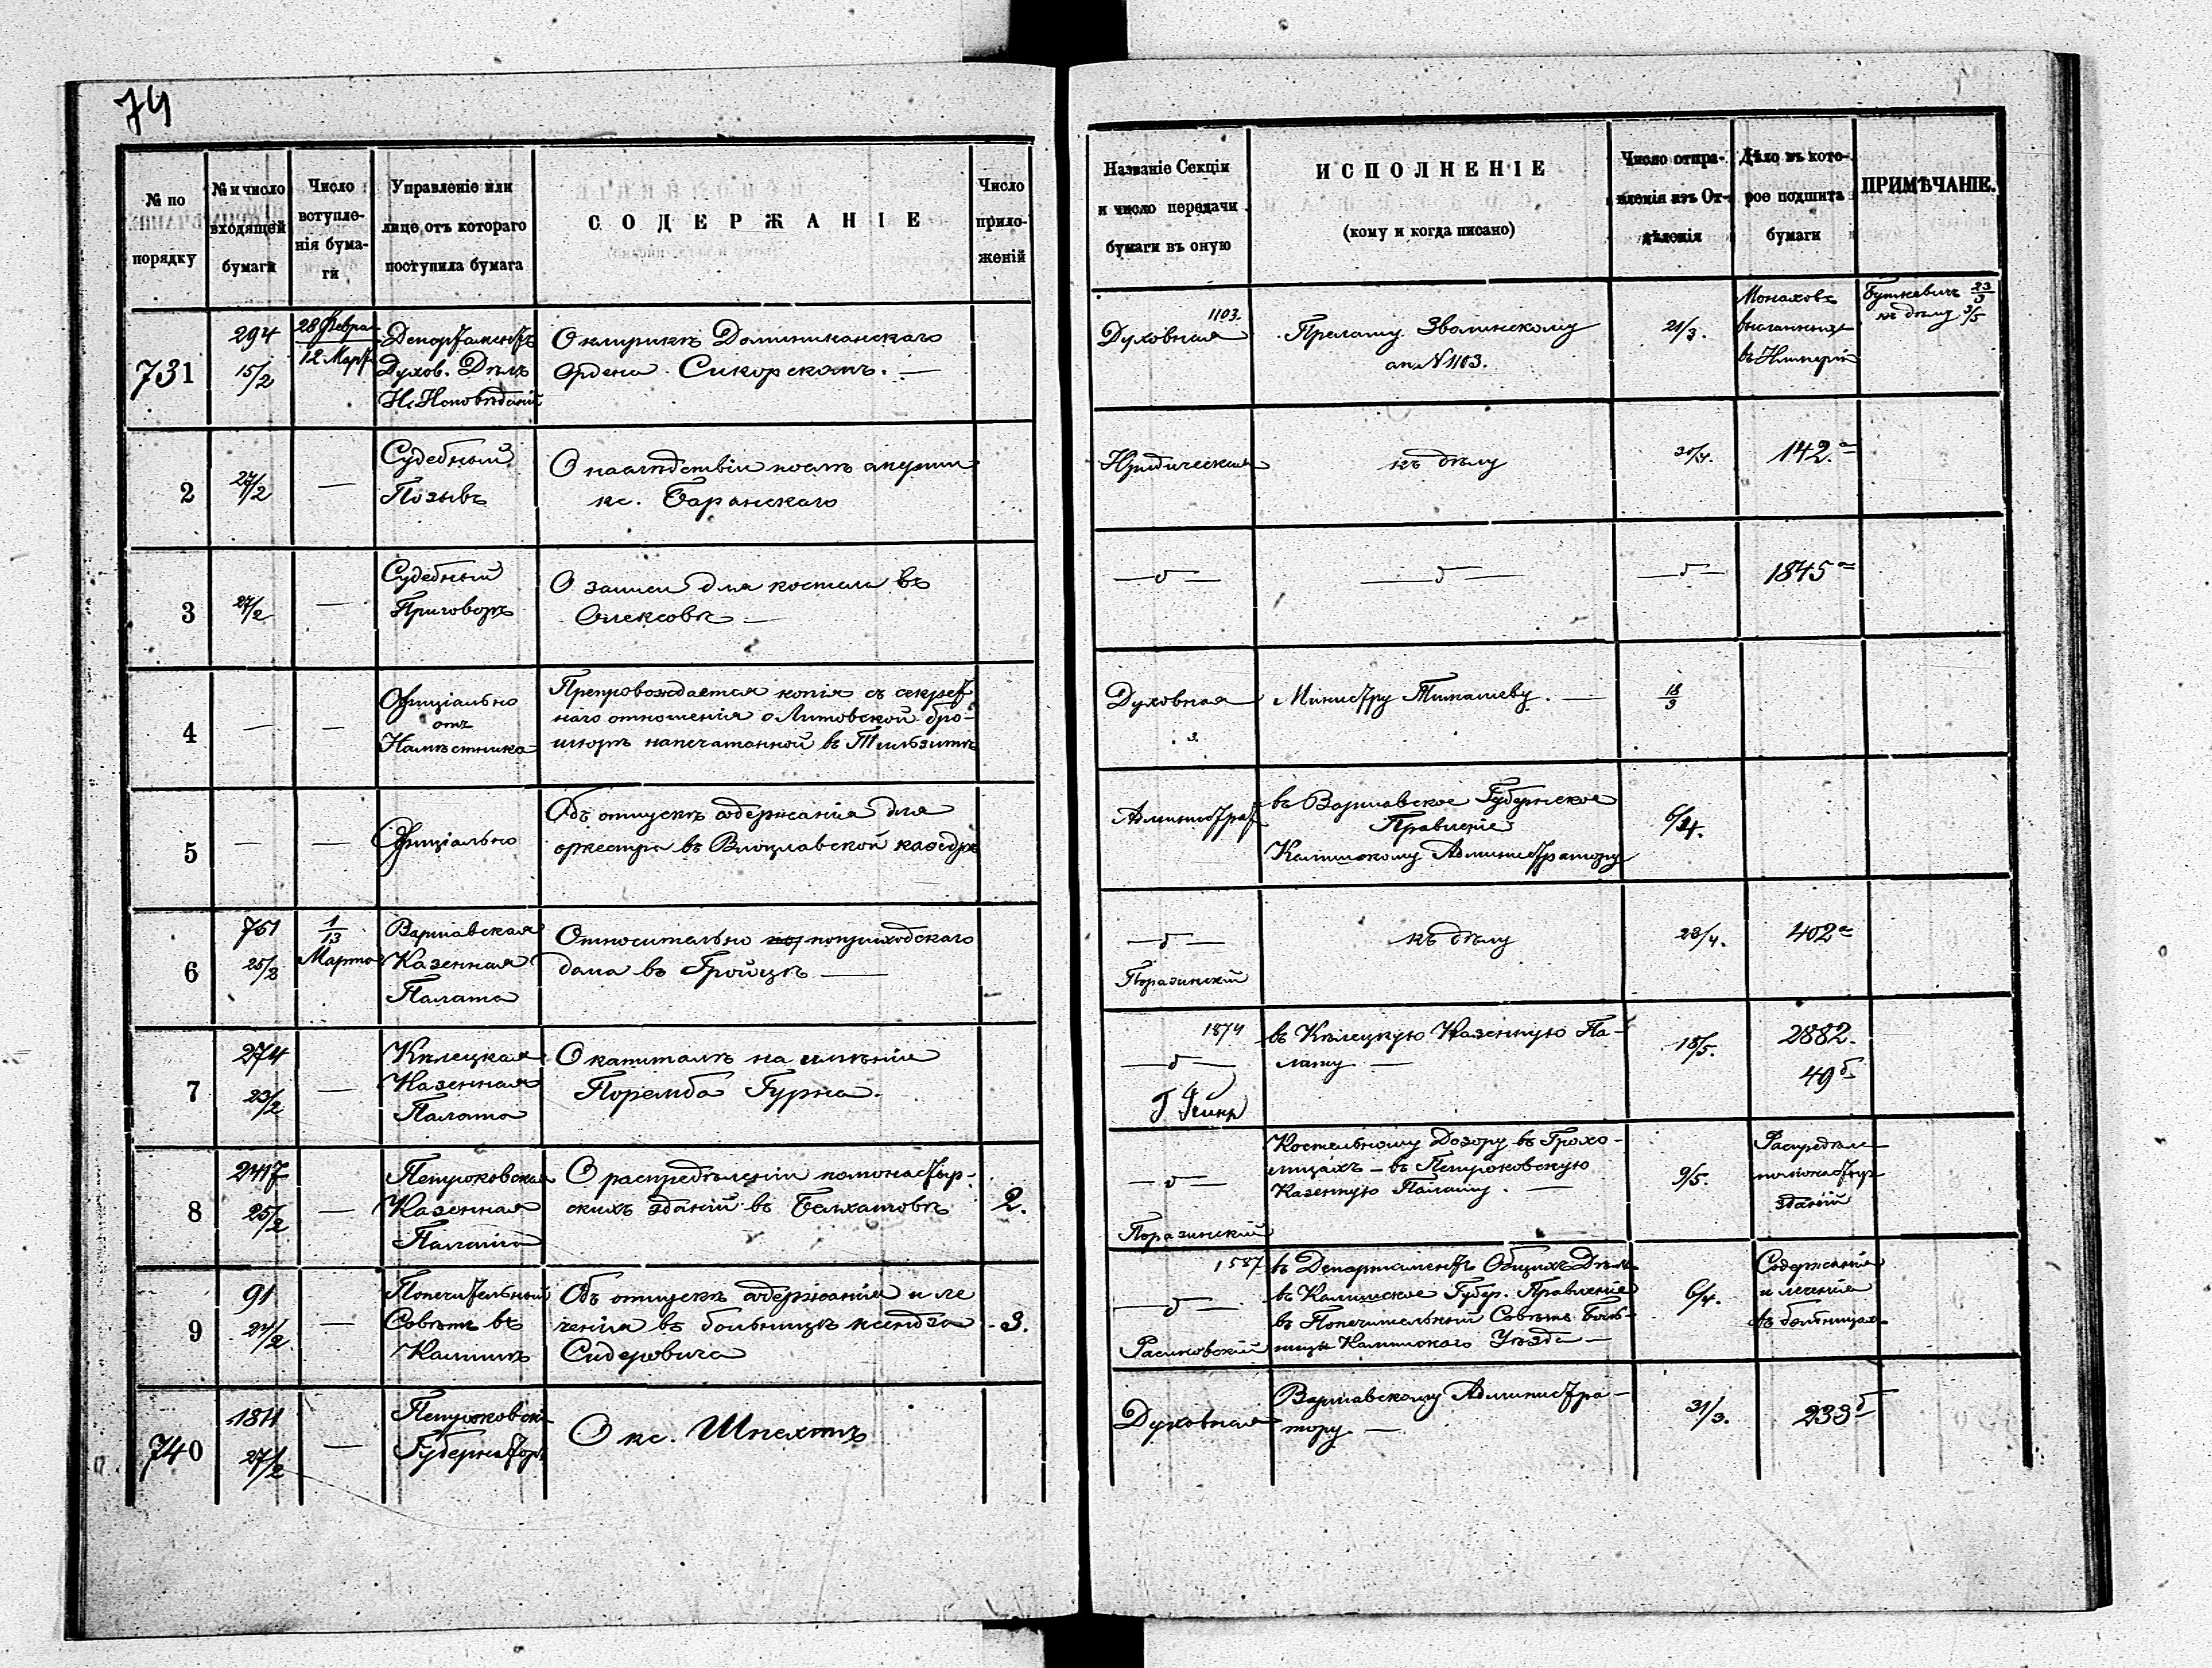 74
№ по порядку
№ и число входящей бумаги
Число вступле-
нія бума-
ги
Управленіе или
лице, отъ котораго
поступила бумага
СОДЕРЖАНІЕ
Число
прило-
женій
Названіе Секціи
и число передачи
бумаги въ оную
ИСПОЛНЕНІЕ
(кому и когда писано)
Число отпра-
вленія изъ От-
дѣленія
Дѣло въ кото-
рое подшита
бумаги
ПРИМѢЧАНІЕ.
731
294
15/2
28 Февра
12 Март
Департаментъ
Духов. Дѣлъ
И. Исповѣданій
О клирикѣ Доминиканскаго
Ордена Сикорскомъ. —
1103.
Духовная
Прелату Зволинскому
за N 1103.
21/3.
Монаховъ
высланныхъ
въ Имперію
Буткевичъ 23/3
къ дѣлу 3/5
2
27/2
—
Судебный
Позывъ
О наслѣдствіи послѣ
кс. Баранскаго
Юридическая
къ дѣлу
30/4.
142.а
3
27/2
—
Судебный
Приговоръ
О записи для костела въ
Олексовѣ —
—б—
—б—
—б—
1845а
4
—
—
Офиціально
отъ
Намѣстника
Препровождается копія съ секрет
наго отношенія о Литовской бро-
шюрѣ напечатанной въ Тильзитѣ
Духовная
з.
Министру Тимашеву. —
18/3
5
—
—
Офиціально
Объ отпускѣ содержанія для
оркестра въ Влоцлавской каѳедрѣ
Администрат
въ Варшавское Губернское
Правленіе
Калишскому Администратору
6/4.
6
761
25/2
1/13
Марта
Варшавская
Казенная
Палата
Относительно поприходскаго
дома въ Гройцѣ —
—б—
Поразинскій
къ дѣлу
23/4.
402а
7
274
23/2
—
Кѣлецкая
Казенная
Палата
О капиталѣ на имѣніи
Поремба Гурна.
1874
—б—
въ Кѣлецкую Казенную Па-
лату —
18/5.
2882.
49б
8
2417
25/2
—
Петроковская
Казенная
Палата
О распредѣленіи помонастыр-
скихъ зданій въ Белхатовѣ
2.
—б—
Поразинскій
Костельному Дозору въ Грохо-
лицахъ — въ Петроковскую
Казенную Палату. —
9/5.
Распредѣле
помонастыр
зданій
9
91
24/2
—
Попечительный
Совѣтъ въ
Калишѣ
Объ отпускѣ содержанія и ле
ченія въ больницѣ ксендза
Сидоровича
3.
1587
—б—
Расиковскій
въ Департаментъ Общихъ Дѣлъ
въ Калишское Губер. Правленіе
въ Попечительный Совѣтъ Боль-
ницы Калишскаго Уѣзда —
6/4.
Содержаніе
и леченіе
въ больницахъ
740
1811
27/2
—
Петроковскій
Губернаторъ
О кс. Шпехтѣ
Духовная
Варшавскому Администра-
тору. —
31/3.
233б